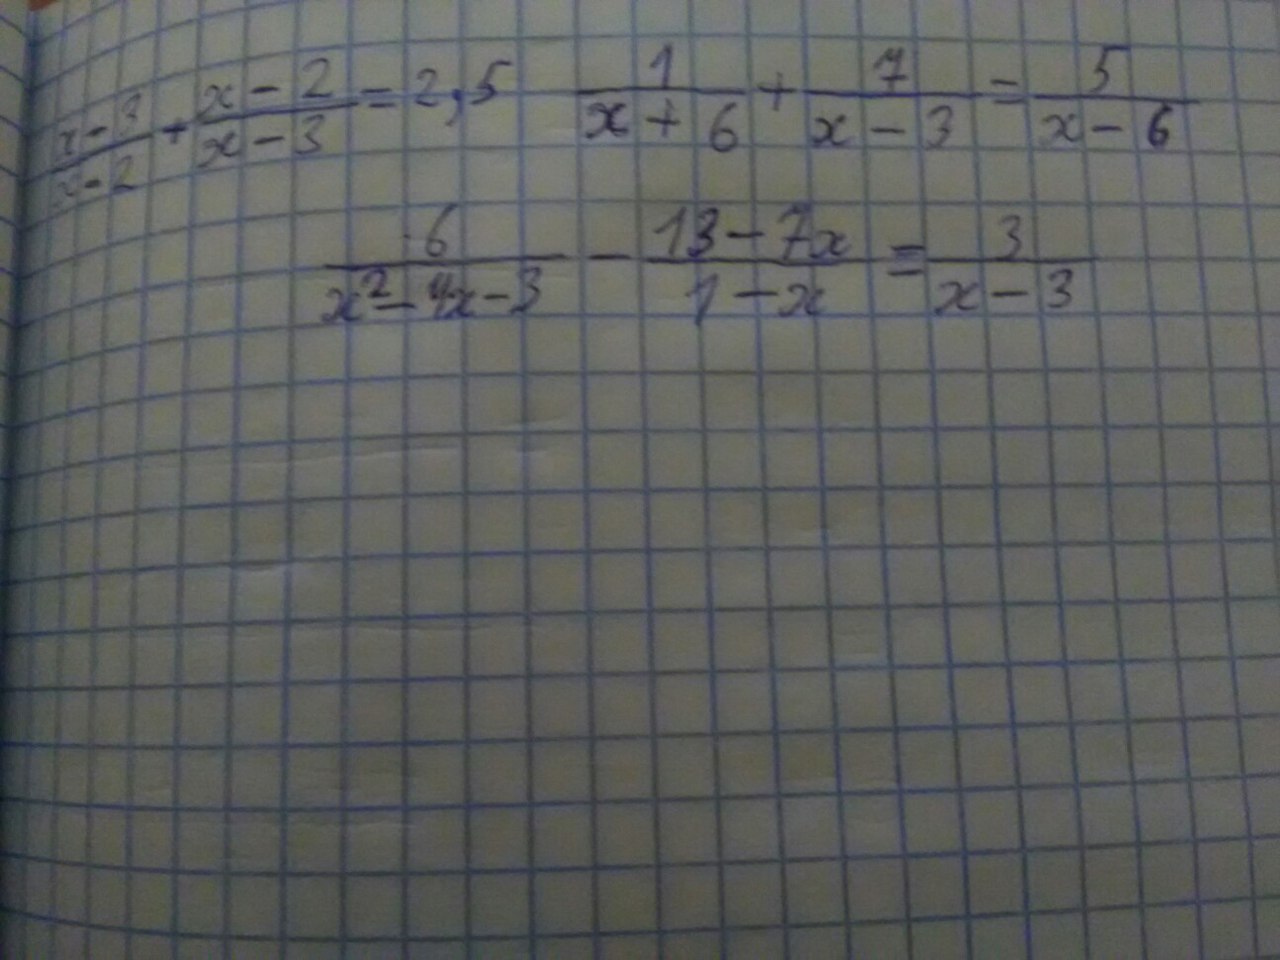 x-3/x-2 + x-2/x-3 = 2,5   1/x+6 + 7/x-3 = 5/x-6
6/x²-4x-3 - 13-7x/1-x = 3/x-3